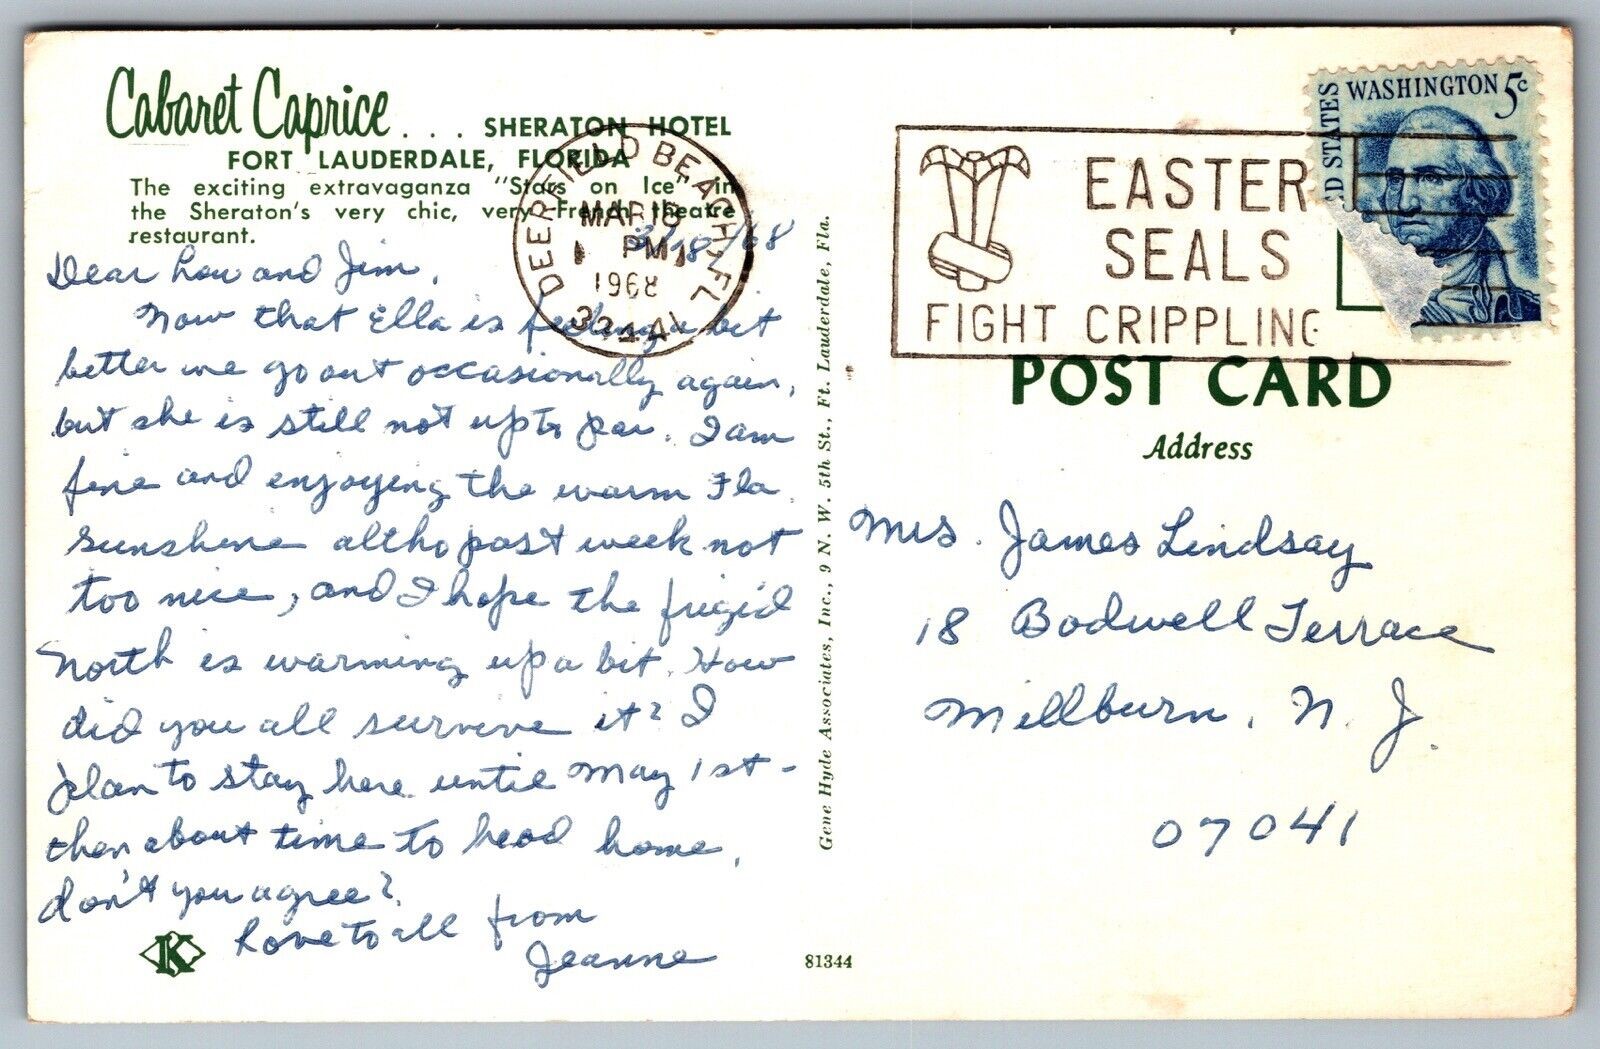 Cabaret Caprice . . . SHERATON HOTEL
FORT LAUDERDALE, FLORIDA
The exciting extravaganza "Stars on Ice" in
the Sheraton's very chic, very French theatre
restaurant.
3/18/68
Dear Lou and Jim,
Now that Ella is feeling a bit
better we go out occasionally again,
but she is still not up to par. I am
fine and enjoying the warm Fla.
sunshine altho past week not
too nice, and I hope the frigid
North is warming up a bit. How
did you all survive it? I
plan to stay here until May 1st -
then about time to head home,
don't you agree?
Love to all from
Jeanne
K
81344
Gene Hyde Associates, Inc., 9 N. W. 5th St., Ft. Lauderdale, Fla.
DEERFIELD BEACH, FL
MAR 18
PM
1968
33441
EASTER
SEALS
FIGHT CRIPPLING
WASHINGTON 5c
D STATES
POST CARD
Address
Mrs. James Lindsay
18 Bodwell Terrace
Millburn, N. J.
07041